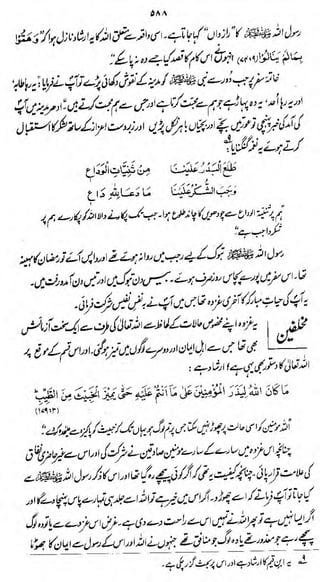 ۵۸۸
رسول اللہ ﷺ کا ”رازداں“ کہا جاتا ہے۔ اسی واقعہ سے متعلق اللہ کا یہ ارشاد نازل ہوا کہ وَهَمُّوا
بِمَا لَمْ يَنَالُوا (۷۴:۹) انہوں نے اس کام کا قصد کیا جسے وہ نہ پا سکے“
خاتمۂ سفر پر جب دور سے نبی ﷺ کو مدینہ کے نقوش دکھائی پڑے تو آپ نے فرمایا: یہ رہا طابہ،
اور یہ رہا اُحد، یہ وہ پہاڑ ہے جو ہم سے محبت کرتا ہے اور جس سے ہم محبت کرتے ہیں۔“ ادھر مدینہ میں آپ
کی آمد کی خبر پہنچی تو عورتیں بچے اور بچیاں باہر نکل پڑیں اور زبردست اعزاز کے ساتھ لشکر کا استقبال
کرتے ہوئے یہ نغمہ گنگنایا۹
طَلَعَ الْبَدْرُ عَلَيْنَا مِنْ ثَنِيَّاتِ الْوَدَاعِ
وَجَبَ الشُّكْرُ عَلَيْنَا مَا دَعَا لِلّٰهِ دَاعِ
”ہم پر ثنیۃ الوداع سے چودھویں کا چاند طلوع ہوا۔ جب تک پکارنے والا اللہ کو پکارے ہم پر
شکر واجب ہے“
رسول اللہ ﷺ تبوک کے لیے رجب میں روانہ ہوئے تھے اور واپس آئے تو رمضان کا مہینہ
تھا۔ اس سفر میں پورے پچاس روز صرف ہوئے۔ بیس دن تبوک میں اور تیس دن آمدورفت میں۔
یہ آپ کی حیاتِ مبارکہ کا آخری غزوہ تھا جس میں آپ نے بنفسِ نفیس شرکت فرمائی۔
مخلّفین یہ غزوہ اپنے مخصوص حالات کے لحاظ سے اللہ تعالیٰ کی طرف سے ایک سخت آزمائش
بھی تھا جس سے اہل ایمان اور دوسرے لوگوں میں تمیز ہو گئی۔ اور اس قسم کے موقع پر
اللہ تعالیٰ کا دستور بھی یہی ہے؛ ارشاد ہے :
مَا كَانَ اللّٰهُ لِيَذَرَ الْمُؤْمِنِينَ عَلٰى مَا أَنْتُمْ عَلَيْهِ حَتّٰى يَمِيزَ الْخَبِيثَ مِنَ الطَّيِّبِ
(۱۷۹:۳)
”اللہ مومنین کو اسی حالت پر چھوڑ نہیں سکتا جس پر تم لوگ ہو یہاں تک کہ خبیث کو پاکیزہ سے علیٰحدہ کر دے“
چنانچہ اس غزوہ میں سارے کے سارے مومنین صادقین نے شرکت کی اور اس سے غیر حاضری نفاق
کی علامت قرار پائی۔ چنانچہ کیفیت یہ تھی کہ اگر کوئی پیچھے رہ گیا تھا اور اس کا ذکر رسول اللہ ﷺ سے کیا
جاتا تو آپ فرماتے کہ اسے چھوڑو۔ اگر اس میں خیر ہے تو اللہ اسے جلد ہی تمہارے پاس پہنچا دے گا اور
اگر ایسا نہیں ہے تو پھر اللہ نے تمہیں اس سے راحت دے دی ہے۔ غرض اس غزوے سے یا تو وہ لوگ
پیچھے رہے جو معذور تھے یا وہ لوگ جو منافق تھے۔ جنہوں نے اللہ اور اس کے رسول سے ایمان کا جھوٹا
۹ یہ ابن قیم کا ارشاد ہے اور اس پر بحث گزر چکی ہے۔